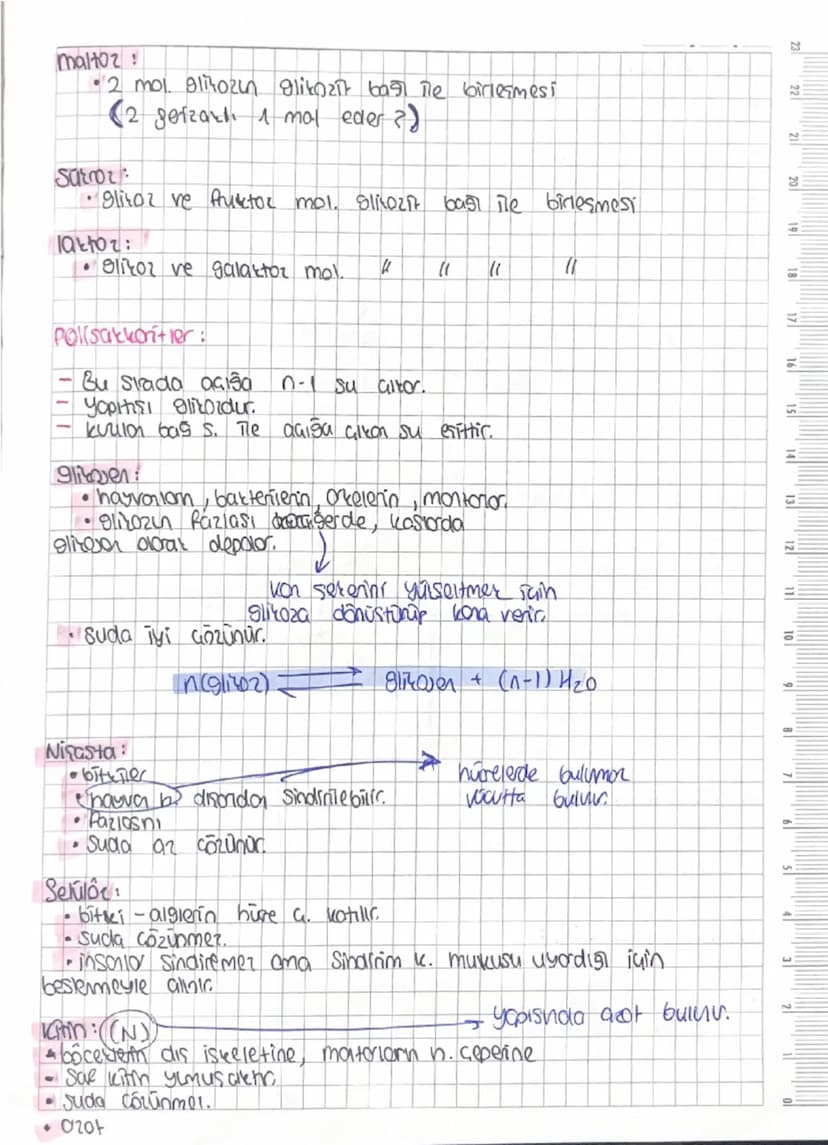 maltoz :
• 2 mol. glikozun glikozit bağı ile birleşmesi
(2 1 mol eder?)
Sakroz:
• glikoz ve fruktoz mol. glikozit bağı ile birleşmesi
laktoz:
• Glikoz ve galaktoz mol. " " " "
Polisakkaritler :
- Bu sırada açığa n-1 su çıkar.
- yapıtaşı glikozdur.
- kurulan bağ s. ile açığa çıkan su eşittir.
glikojen:
• hayvanların, bakterilerin, mantarlar.
• glikozun fazlası ciğerde, kaslarda
glikojen olarak depolar.
kan şekerini yükseltmek için
glikoza dönüştürüp kana verir.
• suda iyi çözünür.
n(glikoz) ⇌ glikojen + (n-1) H2O
Nişasta:
• bitkiler
• hayva b. dışarıdan sindirilebilir.
hücrelerde bulunmaz
vücutta bulunur.
• fazlasını
• suda az çözünür.
Selüloz:
• bitki - alglerin hücre ç. katılır.
• suda çözünmez.
• insanlar sindiremez ama sindirim k. mukusu uyardığı için
beslenmeyle alınır.
Kitin: (N) → yapısında azot bulunur.
• böceklerin dış iskeletine, mantarların h. çeperine
• saf kitin yumuşaktır.
• suda çözünmez.
• azot
23
22
21
20
19
18
17
16
15
14
13
12
11
10
9
8
7
6
5
4
3
2
1
0